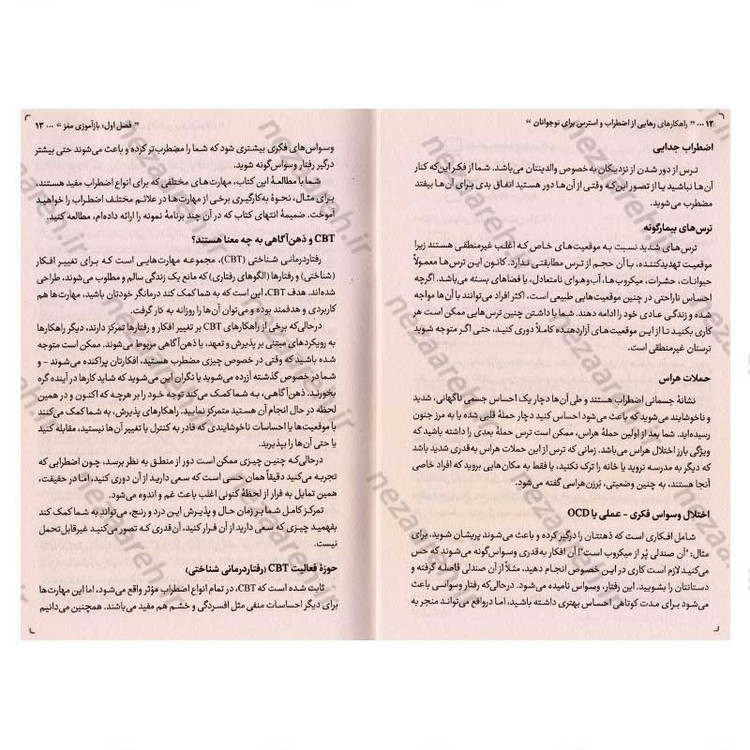 ۱۲ ... " راهکارهای رهایی از اضطراب و استرس برای نوجوانان "
اضطراب جدایی
ترس از دور شدن از نزدیکان به خصوص والدینتان می‌باشد. شما از فکر این‌که کنار
آن‌ها نباشید یا از تصور این‌که وقتی از آن‌ها دور هستید اتفاق بدی برای آن‌ها بیفتد
مضطرب می‌شوید.
ترس‌های بیمارگونه
ترس‌های شدید نسبت به موقعیت‌های خاص که اغلب غیرمنطقی هستند زیرا
موقعیت تهدیدکننده، با آن حجم از ترس مطابقتی ندارد. کانون این ترس‌ها معمولاً
حیوانات، حشرات، میکروب‌ها، آب‌وهوای نامتعادل، یا فضاهای بسته می‌باشد. اگرچه
احساس ناراحتی در چنین موقعیت‌هایی طبیعی است، اکثر افراد می‌توانند با آن‌ها مواجه
شده و زندگی عادی خود را ادامه دهند. شما با داشتن چنین ترس‌هایی ممکن است هر
کاری بکنید تا از این موقعیت‌های آزاردهنده کاملاً دوری کنید، حتی اگر متوجه شوید
ترستان غیرمنطقی است.
حملات هراس
نشانهٔ جسمانی اضطراب هستند و طی آن‌ها دچار یک احساس جسمی ناگهانی، شدید
و ناخوشایند می‌شوید که باعث می‌شود احساس کنید دچار حملهٔ قلبی شده یا به مرز جنون
رسیده‌اید. شما بعد از اولین حملهٔ هراس، ممکن است ترس حملهٔ بعدی را داشته باشید که
ویژگی بارز اختلال هراس می‌باشد. زمانی که ترس از این حملات هراس به‌قدری شدید باشد
که دیگر به مدرسه نروید یا خانه را ترک نکنید، یا فقط به مکان‌هایی بروید که افراد خاصی
آنجا هستند، به چنین وضعیتی، برزن‌هراسی گفته می‌شود.
اختلال وسواس فکری - عملی یا OCD
شامل افکاری است که ذهنتان را درگیر کرده و باعث می‌شوند پریشان شوید. برای
مثال: "آن صندلی پُر از میکروب است"! آن افکار به‌قدری وسواس‌گونه می‌شوند که حس
می‌کنید لازم است کاری در این خصوص انجام دهید، مثلاً از آن صندلی فاصله گرفته و
دستانتان را بشویید. این رفتار، وسواس نامیده می‌شود. درحالی‌که رفتار وسواسی باعث
می‌شود برای مدت کوتاهی احساس بهتری داشته باشید، اما درواقع می‌تواند منجر به
" فصل اول: بازآموزی مغز " ... ۱۳
وسواس‌های فکری بیشتری شود که شما را مضطرب‌تر کرده و باعث می‌شوند حتی بیشتر
درگیر رفتار وسواس‌گونه شوید.
شما با مطالعهٔ این کتاب، مهارت‌های مختلفی که برای انواع اضطراب مفید هستند،
برای مثال، نحوهٔ به‌کارگیری برخی از مهارت‌ها در علائم مختلف اضطراب را خواهید
آموخت. ضمیمهٔ انتهای کتاب که در آن چند برنامهٔ نمونه را ارائه داده‌ام، مطالعه کنید.
CBT و ذهن‌آگاهی به چه معنا هستند؟
رفتاردرمانی شناختی (CBT)، مجموعه مهارت‌هایی است که برای تغییر افکار
(شناختی) و رفتارها (الگوهای رفتاری) که مانع یک زندگی سالم و مطلوب می‌شوند، طراحی
شده‌اند. هدف CBT، این است که به شما کمک کند درمانگر خودتان باشید، مهارت‌ها هم
کاربردی و هدفمند بوده و می‌توان آن‌ها را روزانه به کار گرفت.
درحالی‌که برخی از راهکارهای CBT بر تغییر افکار و رفتارها تمرکز دارند، دیگر راهکارها
به رویکردهای مبتنی بر پذیرش و تعهد، یا ذهن‌آگاهی مربوط می‌شوند. ممکن است متوجه
شده باشید که وقتی در خصوص چیزی مضطرب هستید، افکارتان پراکنده می‌شوند – و
شما در خصوص گذشته آزرده می‌شوید یا نگران این می‌شوید که شاید کارها در آینده گره
بخورند. ذهن‌آگاهی، به شما کمک می‌کند توجه خود را بر هرچه که اکنون و در همین
لحظه در حال انجام آن هستید متمرکز نمایید. راهکارهای پذیرش، به شما کمک می‌کنند
با موقعیت‌ها یا احساسات ناخوشایندی که قادر به کنترل یا تغییر آن‌ها نیستید، مقابله کنید
یا حتی آن‌ها را بپذیرید.
درحالی‌که چنین چیزی ممکن است دور از منطق به نظر برسد، چون اضطرابی که
تجربه می‌کنید دقیقاً همان حسی است که سعی دارید از آن دوری کنید، اما در حقیقت،
همین تمایل به فرار از لحظهٔ کنونی اغلب باعث غم و اندوه می‌شود.
تمرکز کامل شما بر زمان حال و پذیرش این درد و رنج، می‌تواند به شما کمک کند
بفهمید چیزی که سعی دارید از آن فرار کنید، آن‌قدری که تصور می‌کنید غیرقابل‌تحمل
نیست.
حوزهٔ فعالیت CBT (رفتاردرمانی شناختی)
ثابت شده است که CBT، در تمام انواع اضطراب مؤثر واقع می‌شود، اما این مهارت‌ها
برای دیگر احساسات منفی مثل افسردگی و خشم هم مفید می‌باشند. همچنین می‌دانیم
nezaareh.ir